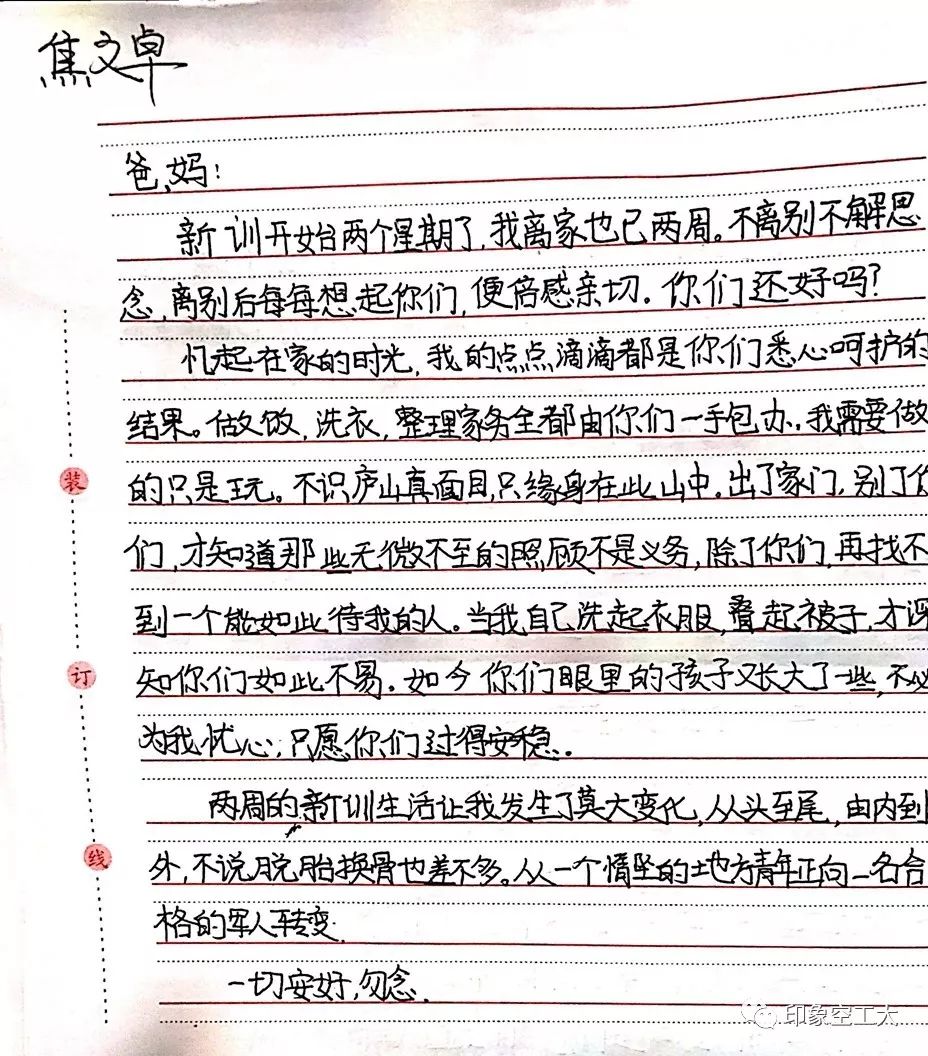 焦文卓
爸、妈：
新训开始两个星期了,我离家也已两周。不离别不解思
念,离别后每每想起你们,便倍感亲切。你们还好吗?
忆起在家的时光,我的点点滴滴都是你们悉心呵护的
结果。做饭,洗衣,整理家务全都由你们一手包办,我需要做
的只是玩。不识庐山真面目,只缘身在此山中。出了家门,别了你
们,才知道那些无微不至的照顾不是义务,除了你们,再找不
到一个能如此待我的人。当我自己洗起衣服,叠起被子,才深
知你们如此不易。如今你们眼里的孩子又长大了一些,不必
为我忧心;只愿你们过得安稳。
两周的新训生活让我发生了莫大变化,从头至尾,由内到
外,不说脱胎换骨也差不多。从一个惰坠的地方青年正向一名合
格的军人转变.
一切安好,勿念.
装
订
线
印象空工大